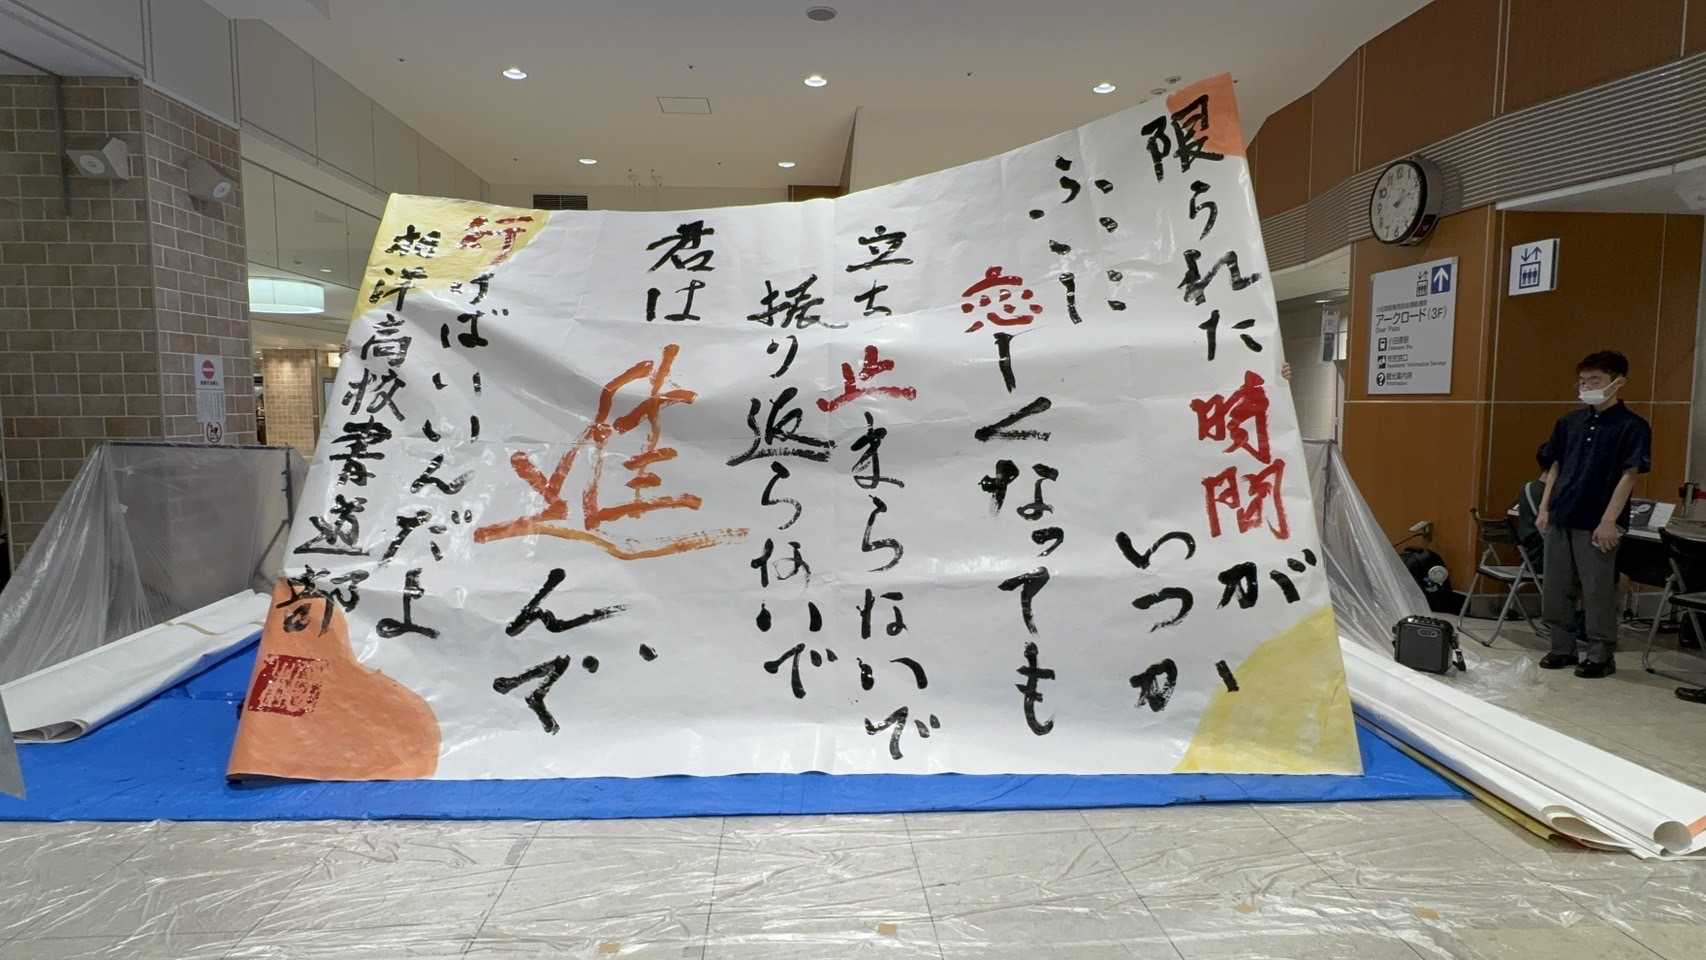 限られた時間が
いつか
ふいに
恋しくなっても
立ち止まらないで
振り返らないで
君は
進んで
行けばいいんだよ
相洋高校書道部
アークロード(3F)
小田原駅
観光案内所
Information